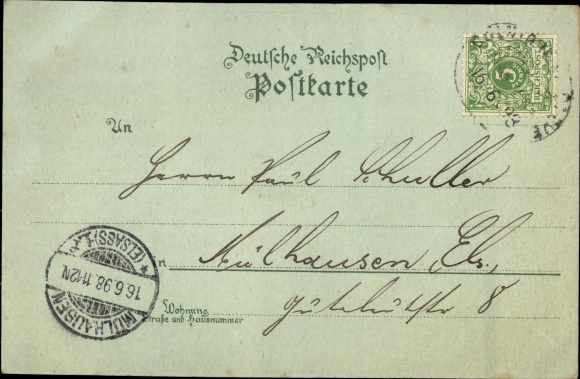 Deutsche Reichspost
Postkarte
5
REICHSPOST
16 6 98
An
Herrn Paul Schuller
in Mülhausen, Els.,
8
Wohnung
Straße und Hausnummer
MÜLHAUSEN
(ELSASS) 1
16.6.98.11-12N.